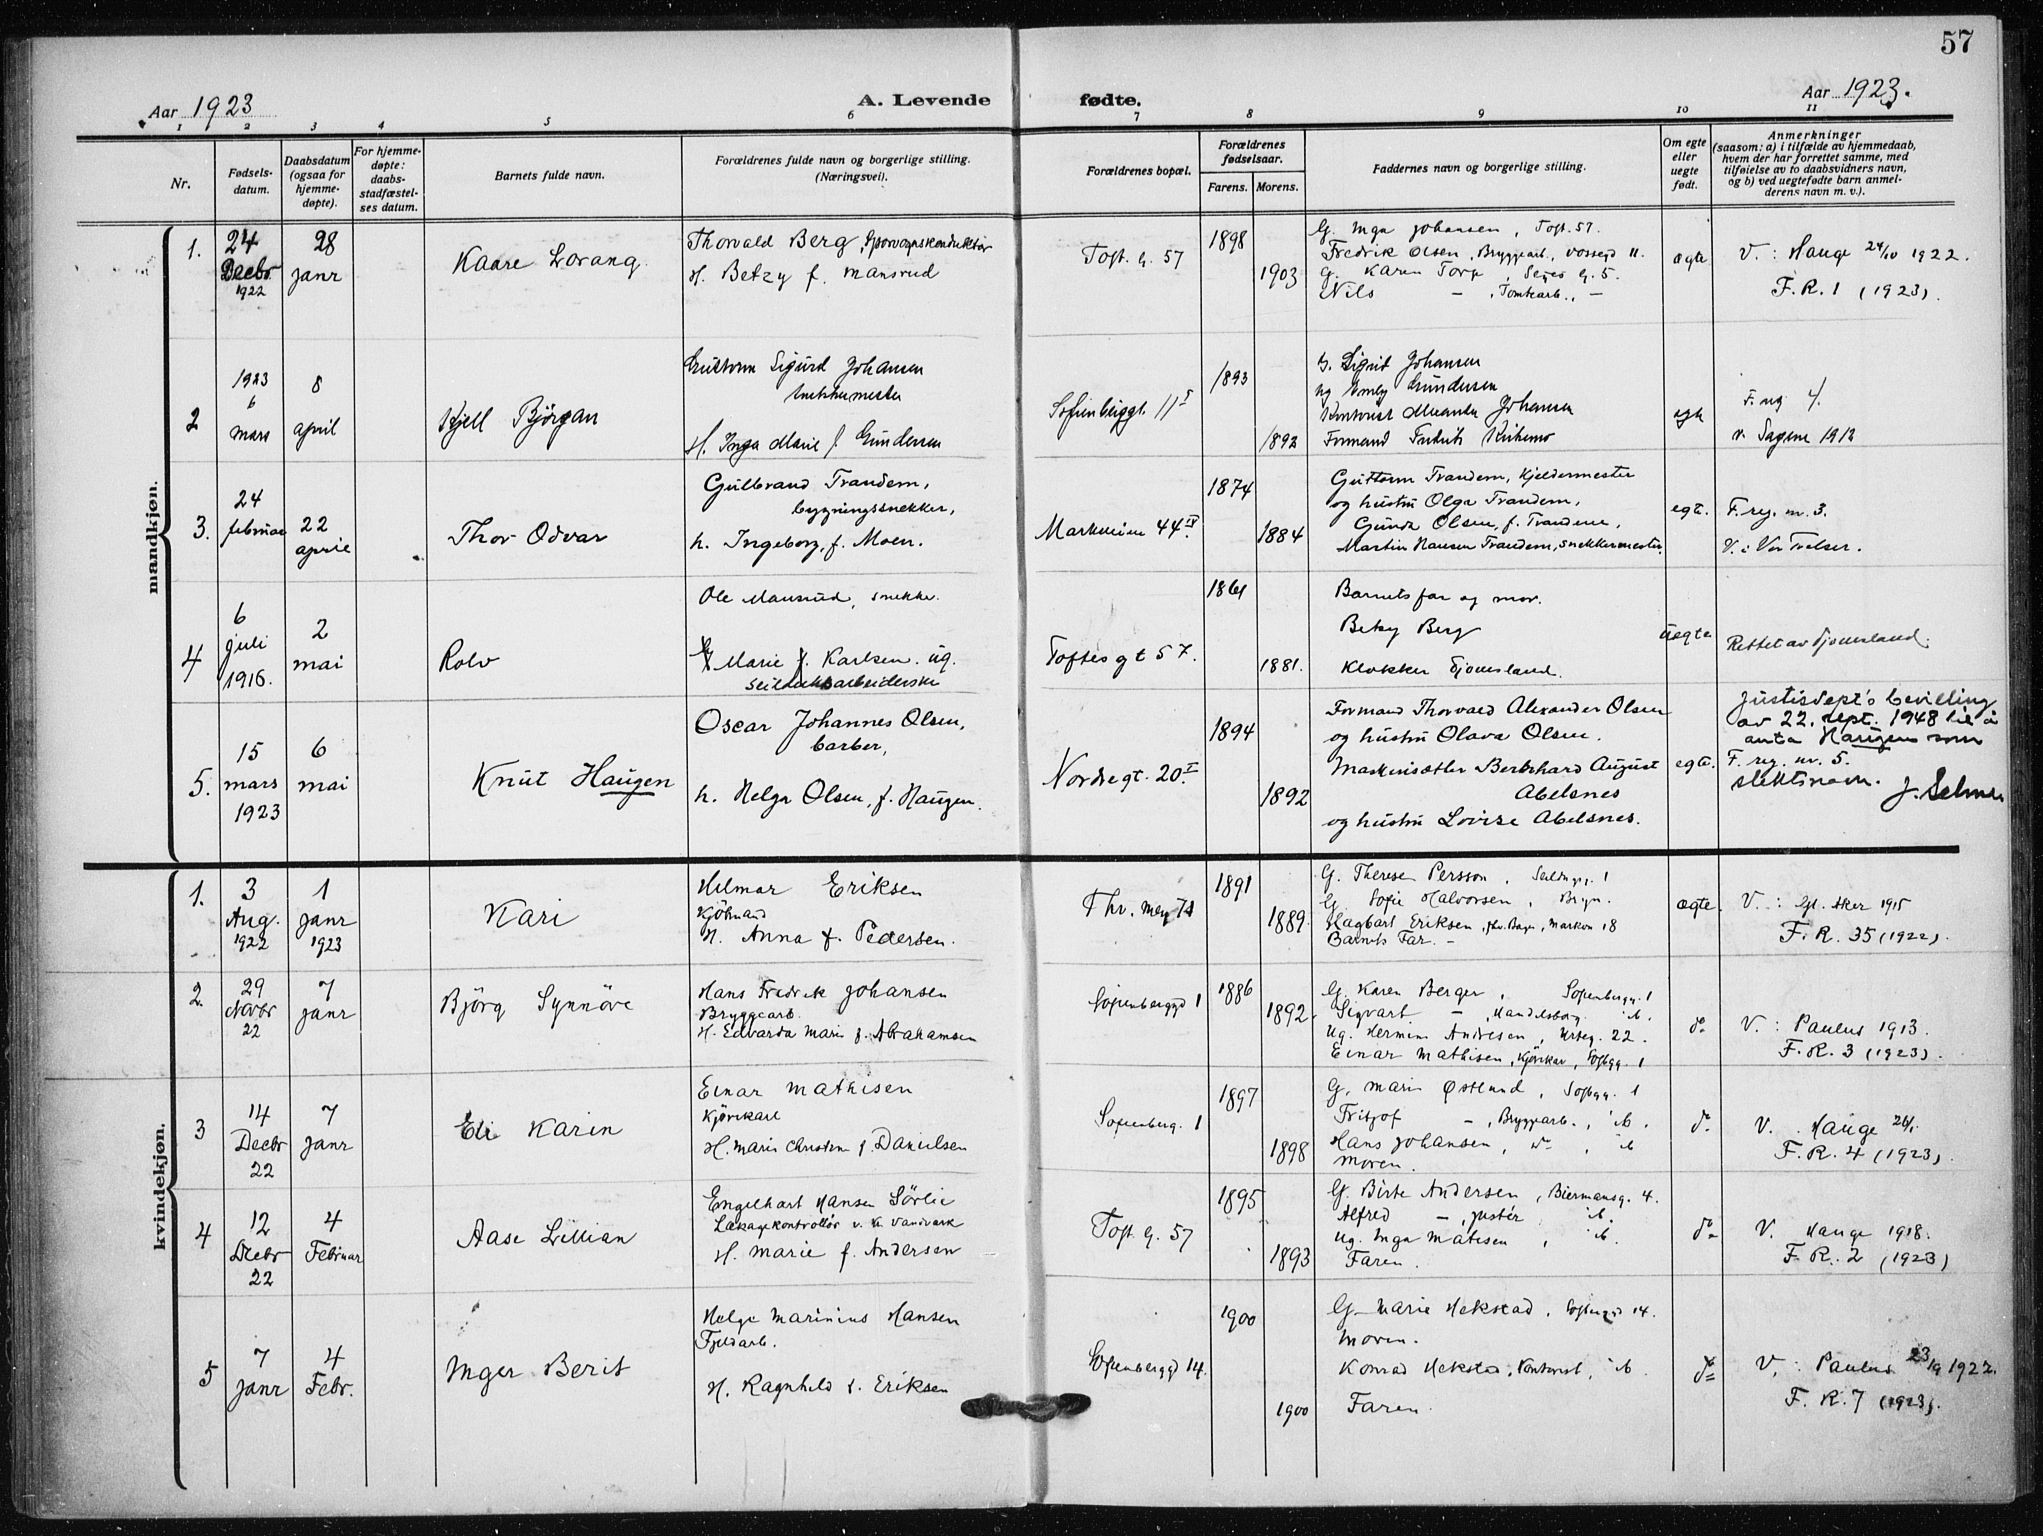 57
Aar 1923
A. Levende fødte.
Aar 1923.
1 2 3 4 5 6 7 8 9 10 11
Nr.
Fødsels-
datum.
Daabsdatum
(ogsaa for
hjemme-
døpte).
For hjemme-
døpte:
daabs-
stadfæstel-
ses datum.
Barnets fulde navn.
Forældrenes fulde navn og borgerlige stilling.
(Næringsvei).
Forældrenes bopæl.
Forældrenes
fødselsaar.
Farens. Morens.
Faddernes navn og borgerlige stilling.
Om egte
eller
uegte
født.
Anmerkninger
(saasom: a) i tilfælde av hjemmedaab,
hvem der har forrettet samme, med
tilføielse av to daabsvidners navn,
og b) ved uegtefødte barn anmel-
derens navn m. v.).
mandkjøn.
1.
24
Decbr
1922
28
janr
Kaare Lorang
Thorvald Berg, Sporvognskonduktør
H. Betzy f. Mansrud
Toft. G. 57
1898
1903
G. Inga Johansen, Toft. 57.
Fredrik Olsen, Bryggearb., Vossegd 11.
G. Karen Torp, G. 5.
Nils — , Tomtearb., —
ægte
V. : Hauge 24/10 1922.
F. R. 1 (1923).
2
1923
6
mars
8
april
Kjell Björgan
Guttorm Sigurd Johansen
snekkermester
H. Inga Marie f Gundersen
Sofienberggt. 11 I
1893
1892
G. Sigrid Johansen
Ug Gundersen
Kontorist Johansen
Formand
egte
F. reg 4.
v. Sagene 1912
3.
24
februar
22
april
Thor Odvar
Gulbrand Trandem,
bygningssnekker,
h. Ingeborg, f. Moen.
Markveien 44 IV
1874
1884
Guttorm Trandem, Kjeldermester
og hustru Olga Trandem,
Gunda Olsen, f. Trandem,
Martin Hansen Trandem, snekkermester.
egte.
F. reg. nr. 3.
V. i Vor Frelser.
4
6
juli
1916.
2
mai
Rolv
Ole Mansrud, snekker.
Marie Karlsen. ug.
Seildukksarbeiderske
Toftes gt 57.
1861
1881.
Barnets far og mor.
Betzy Berg
Klokker Tjomsland.
uegte
Rettet av Tjomsland.
5.
15
mars
1923
6
mai
Knut Haugen
Oscar Johannes Olsen,
barber,
h. Helga Olsen, f. Haugen.
Nordregt. 20 I
1894
1892
Formand Thorvald Alexander Olsen
og hustru Olava Olsen.
Maskinsætter Bernhard August
Abelsnes
og hustru Lovise Abelsnes.
egte.
Justisdept's bevilling
av 22. sept. 1948 til å
anta Haugen som
F. reg. nr. 5.
slektsnavn. J. Selmer
kvindekjøn.
1.
3
Aug.
1922
1
janr
1923
Kari
Hilmar Eriksen
Kjöbmand
H. Anna f. Pedersen.
Thv. Mey 71
1891
1889.
G. Therese Persson, Seildugsg. 1
G. Sofie Halvorsen,
Hagbart Eriksen, , Markv 18
Barnets Far. —
ægte.
V. : Gl. Aker 1915
F. R. 35 (1922).
2
29
Novbr
22
7
janr
Björg Synnöve
Hans Fredrik Johansen
Bryggearb.
H. Edvarda Marie f. Abrahamsen
Sofienberggd 1
1886
1892.
G. Karen Berger, Sofienbergg. 1
Sigvart — , Handelsborg. ib.
Ug. Hermine Andresen, Urteg. 22.
Einar Mathisen, Kjörekar, Sofbgg. 1
do
V. : Paulus 1913.
F. R. 3 (1923).
3
14
Decbr
22
7
janr
Eli Karin
Einar Mathisen
Kjörekarl
H. Marie Christine f. Danielsen
Sofienberg. 1
1897
1898
G. Marie Østlund, Sofbgg. 1
Fritjof — , Bryggearb., ib.
Hans Johansen, do, ib
Moren.
do
V. Hauge
F. R. 4 (1923).
4
12
Decbr
22
4
Februar
Aase Lillian
Engelhart Hansen Sörlie
Lækagekontrollör v. Kr Vandværk
H. Marie f. Andersen
Toft G. 57
1895
1893
G. Birte Andersen, Biermansg. 4.
Alfred — , Justér ib.
Ug. Inga Matisen, ib.
Faren.
do
V. Hauge 1918.
F. R. 2 (1923)
5
7
janr
4
Febr.
Inger Berit
Helge Marinius Hansen
Fjeldarb.
H. Ragnhild f. Eriksen
Sofienberggd 14.
1900
1900
G. Marie Hekstad, 14.
Moren.
Konrad Hekstad, Kontorist, ib.
Faren.
do
V. : Paulus 23/9 1922.
F. R. 7 (1923).